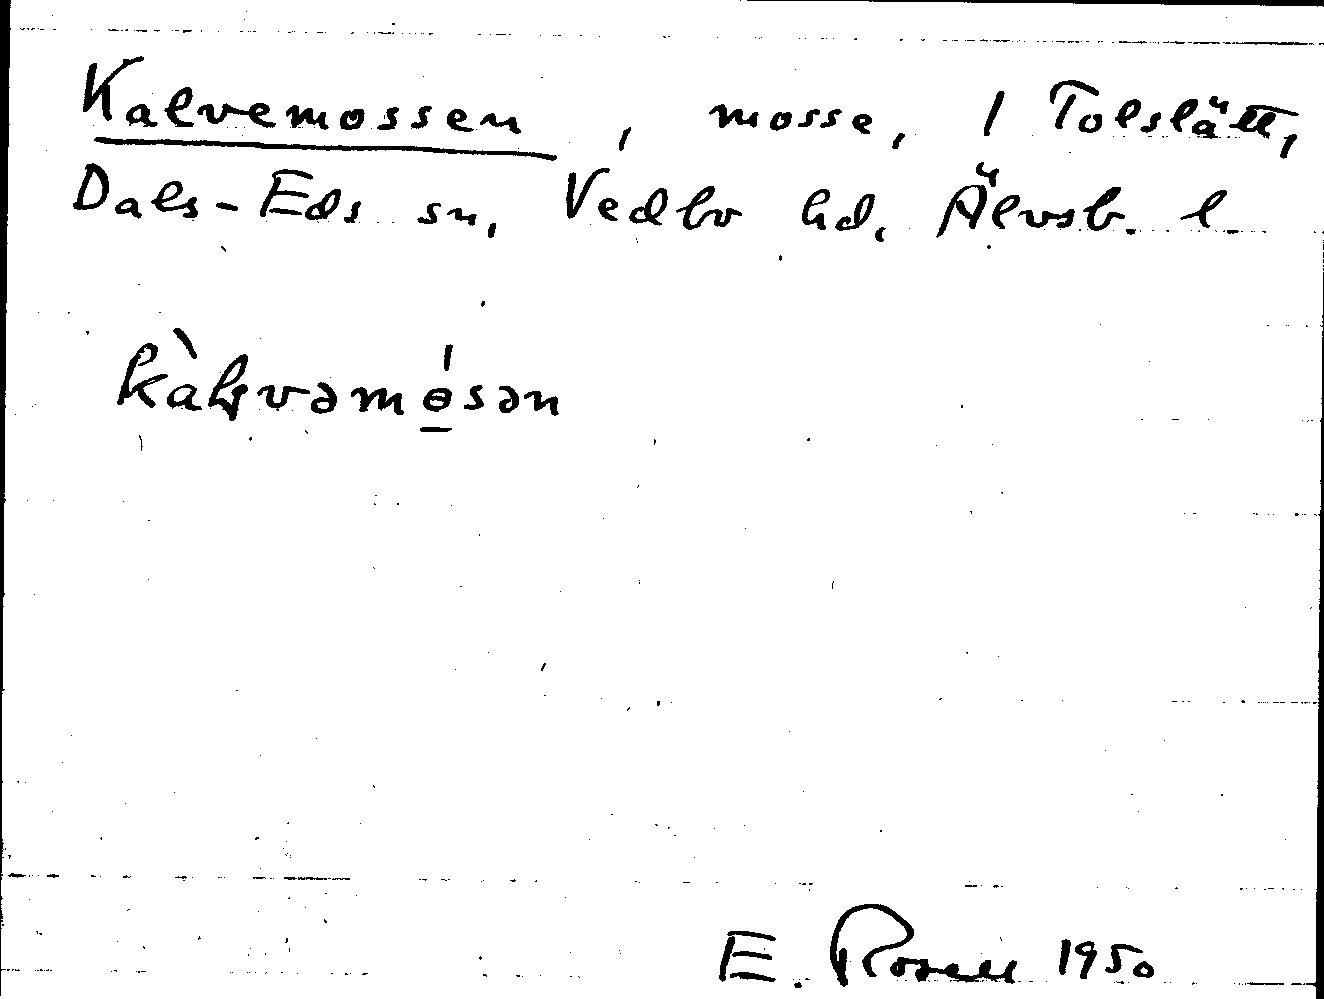 Kalvemossen, mosse, 1 Tolslätt,
Dals-Eds sn, Vedbo hd, Älvsb. l.
kàłvəmɵ́sən
E. Rosell 1950